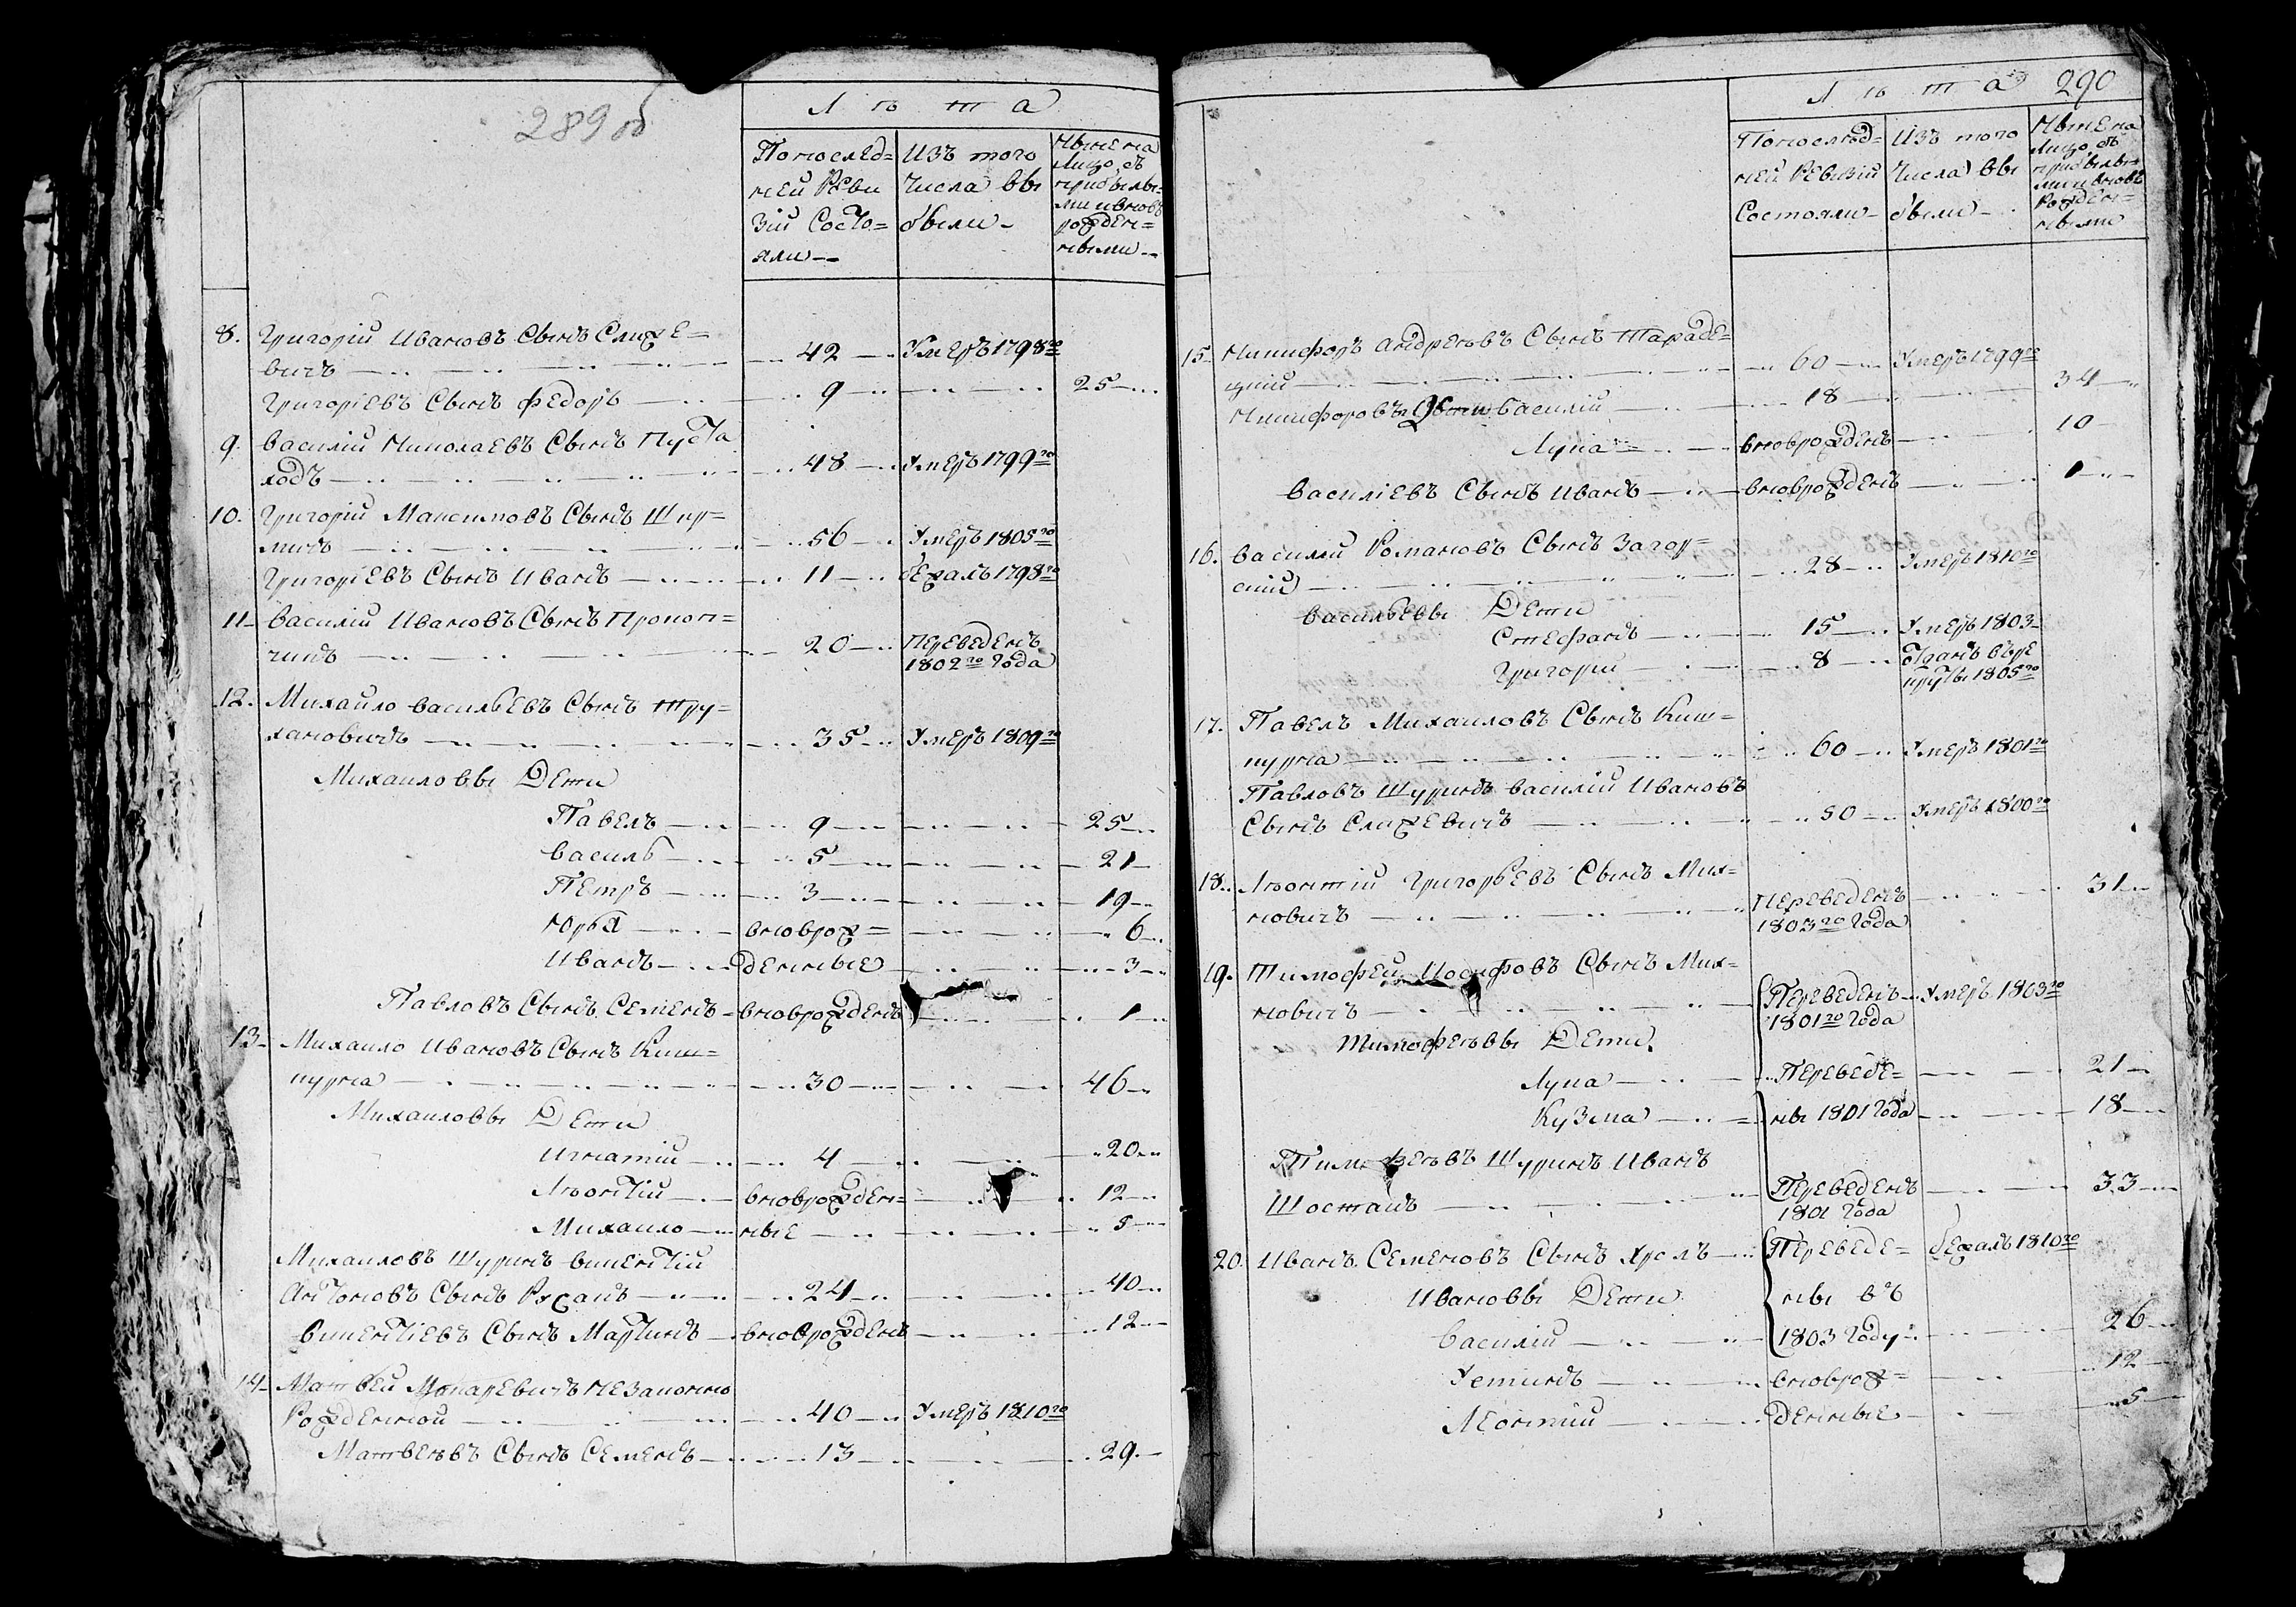 289 об
Лѣта
По послед=
ней Реви
зіи Состо=
яли
Изъ того
числа вы
были
Ныне на
лицо съ
прибылы=
ми и вновь
рожден=
ными
8. Григорій Ивановъ Сынъ Слиже=
вичъ 42 Умеръ 1798го
Григоріевъ Сынъ Федоръ 9 25
9. Василій Николаевъ Сынъ Пуста
ходъ 48 Умеръ 1799го
10. Григорій Максимовъ Сынъ Шир=
мичъ 56 Умеръ 1805го
Григоріевъ Сынъ Иванъ 11 бежалъ 1798го
11 Василій Ивановъ Сынъ Прокоп=
чикъ 20 Переведенъ
1802го года
12. Михайло Васильевъ Сынъ Тру=
хановичъ 35 Умеръ 1809го
Михаиловы Дети
Павелъ 9 25
Василь 5 21
Петръ 3 19
Юрья вновь рож= 6
Иванъ денные 3
Павловъ Сынъ Семенъ вновь рожденъ 1
13 Михаило Ивановъ Сынъ Киш=
курна 30 46
Михаиловы Дети
Игнатій 4 20
Лѣонтій вновь рожден= 12
Михаило ные 5
Михаиловъ Шуринъ Викентій
Антоновъ Сынъ Русакъ 24 40
Викентіевъ Сынъ Мартинъ вновь рожденъ 12
14 Матвей Макаревичъ незаконно
Рожденной 40 Умеръ 1810го
Матвеѣвъ Сынъ Семенъ 13 29
290
Лѣта
По послѣд=
ней Ревизіи
Состояли
Изъ того
числа вы
были
Ныне на
лицо съ
прибылы=
ми и вновь
Рожден=
ными
15 Никифоръ Андреѣвъ Сынъ Тараде=
цкій 60 Умеръ 1799го
Никифоровы Дети Василій 18 34
Лука вновь рожденъ 10
Василіевъ Сынъ Иванъ вновь рожденъ 1
16. Василій Романовъ Сынъ Загор=
скій 28 Умеръ 1810го
Васильевы Дети
Стефанъ 15 Умеръ 1803
Григорій 8 Отданъ въ ре
круты 1805го
17. Павелъ Михаиловъ Сынъ Киш=
курна 60 Умеръ 1801го
Павловъ Шуринъ Василій Ивановъ
Сынъ Слижевичъ 50 Умеръ 1800го
18. Лѣонтій Григорьевъ Сынъ Мих=
новичъ Переведенъ 31
1803го года
19. Тимофей Иосифовъ Сынъ Мих=
новичъ Переведенъ Умеръ 1803го
1801го года
Тимофеѣвы Дети
Лука Переведе= 21
Кузма ны 1801 года 18
Тимофеѣвъ Шуринъ Иванъ
Шостакъ Переведенъ 33
1801 года
20. Иванъ Семеновъ Сынъ Хролъ Переведе= бежалъ 1810го
Ивановы Дети ны въ
Василій 1803 году 26
Устинъ вновь рож= 12
Леонтій денные 5